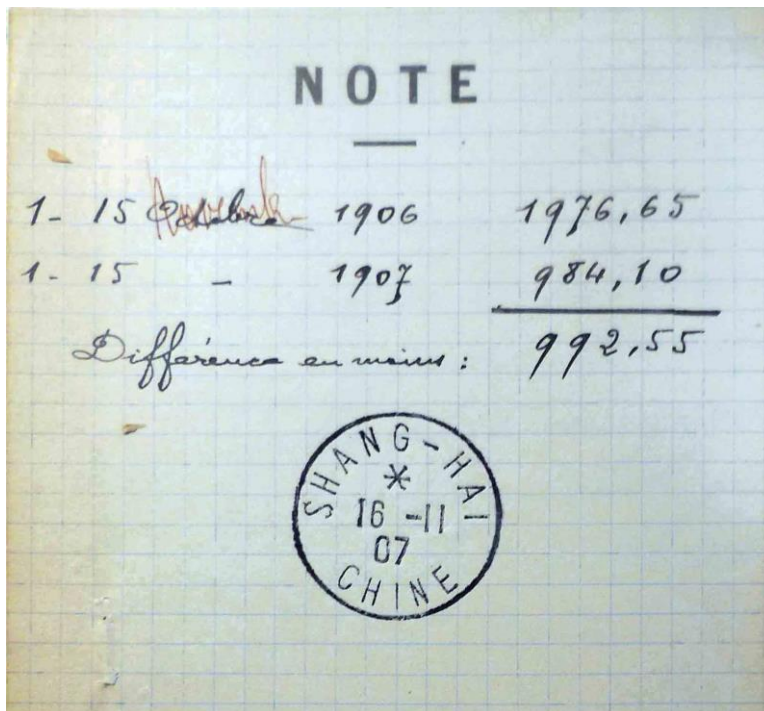 NOTE
1- 15 1906 1976,65
1- 15 - 1907 984,10
Différence en moins : 992,55
SHANG-HAI
*
16 -11
07
CHINE